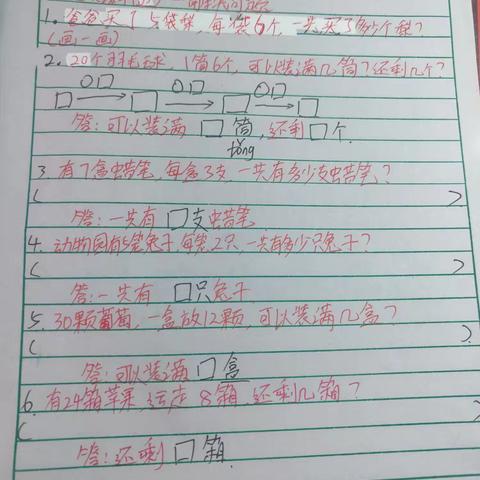 1. 爸爸买了5袋梨,每袋6个,一共买了多少个梨?
(画一画)
2. 20个羽毛球,1筒6个,可以装满几筒?还剩几个?
○□ ○□ ○□
□→□→□→□
答:可以装满 □ 筒,还剩□个.
tǒng
3. 有7盒蜡笔,每盒3支,一共有多少支蜡笔?
( )
答:一共有 □支蜡笔
4. 动物园有5笼兔子,每笼2只,一共有多少只兔子?
( )
答:一共有 □只兔子
5. 30颗葡萄,一盒放12颗,可以装满几盒?
( )
答:可以装满□盒
6. 有24箱苹果,运走 8箱,还剩几箱?
(
答:还剩 □ 箱.